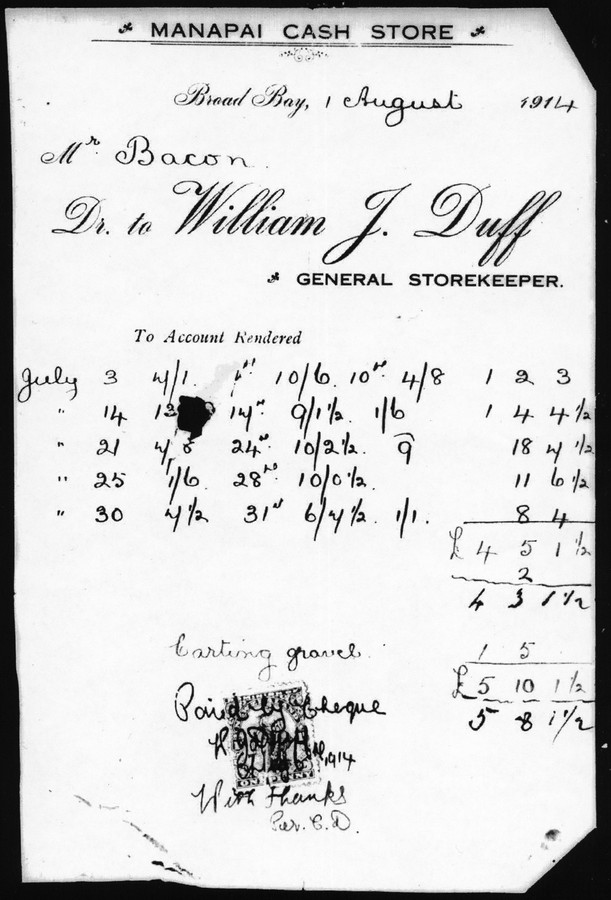 MANAPAI CASH STORE
Broad Bay, 1 August 1914
Mr Bacon.
Dr. to William J. Duff
GENERAL STOREKEEPER.
To Account Rendered
July 3 7/1. 10/6. 10th 4/8 1 2 3
" 14 13 14th 9/1½. 1/6 1 4 4½
" 21 7/8 24th 10/2½. 9 18 7½
" 25 1/6. 28th 10/0½. 11 6½
" 30 7½ 31st 6/7½. 1/1. 8 4
£4 5 1½
2
4 3 1½
Carting gravel. 1 5
£5 10 1½
Paid by Cheque
5 8 1½
1914
With thanks
Per. C. D.